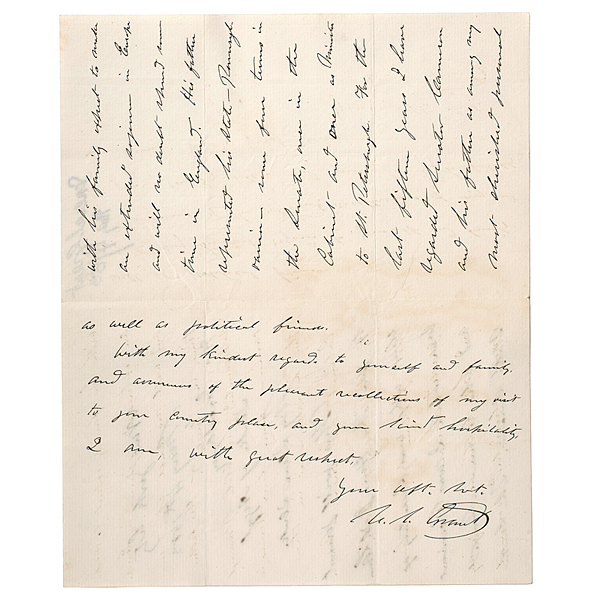 with his family expect to make
an extended sojourn in Europe
and will no doubt spend some
time in England. His father
represented his State—Pennsyl-
vania—some four terms in
the Senate, once in the
Cabinet and once as Minister
to St. Petersburgh. For the
last fifteen years I have
regarded Senator Cameron
and his father as among my
most cherished personal
as well as political friends.
With my kindest regards to yourself and family,
and assurances of the pleasant recollections of my visit
to your country place, and your kind hospitality,
I am, with great respect,
Your obt. svt.
U. S. Grant